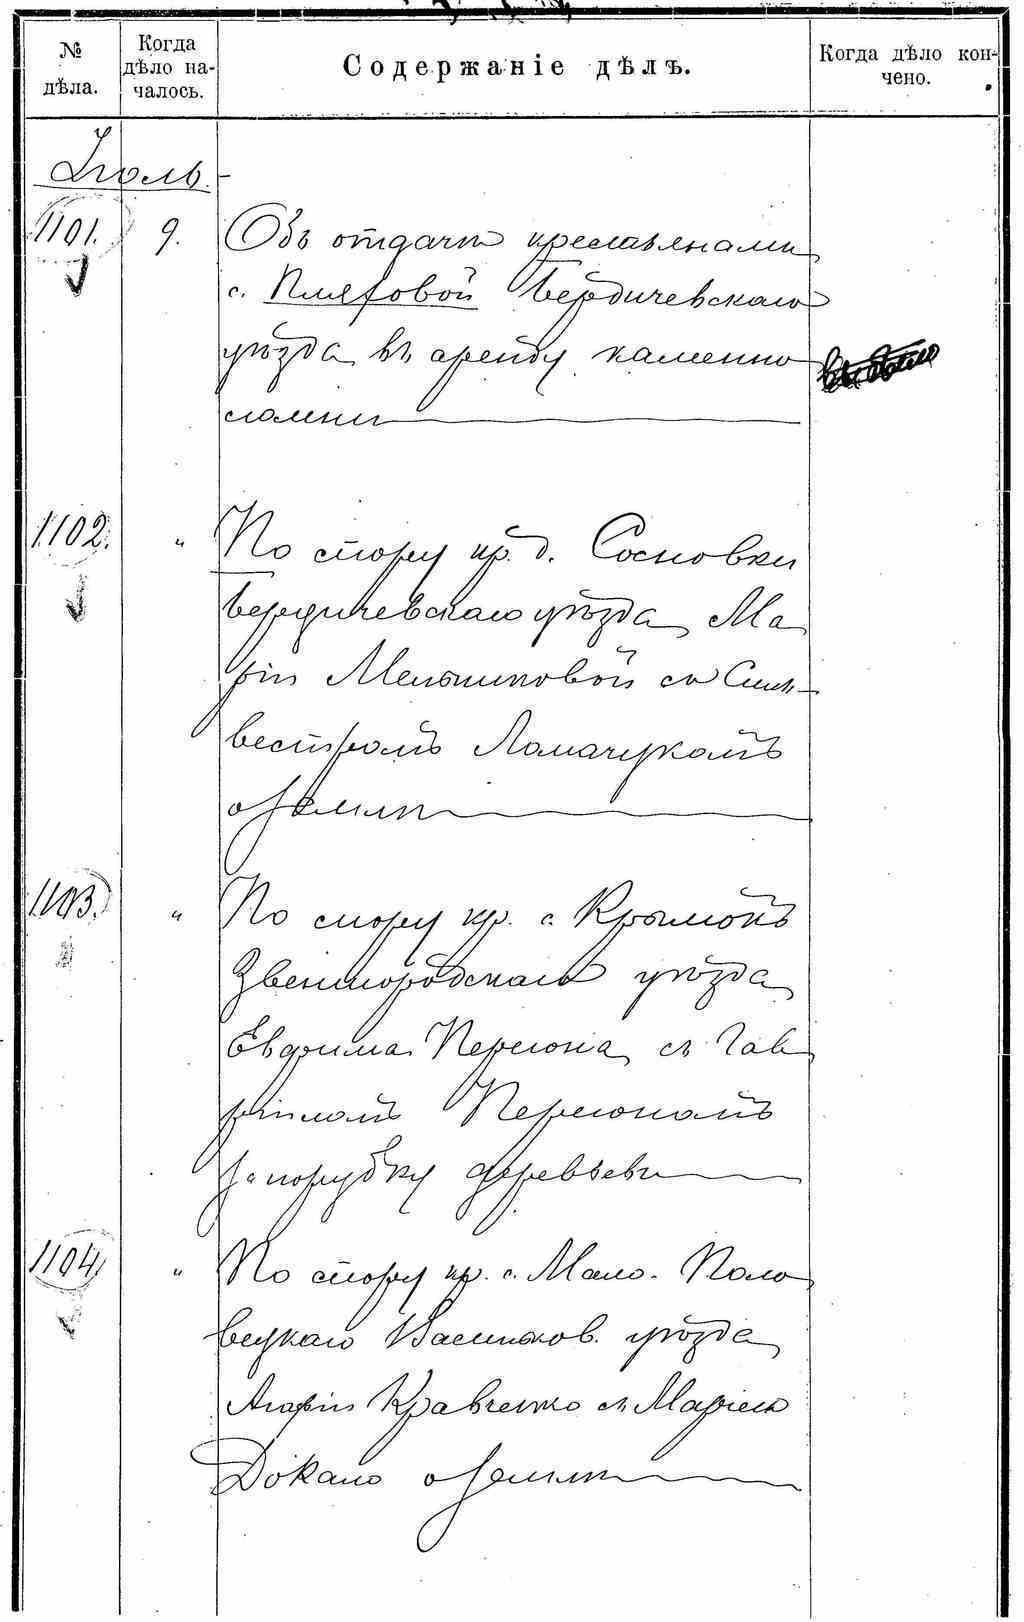 № дѣла.
Когда дѣло на-
чалось.
Содержаніе дѣлъ.
Когда дѣло кон-
чено.
Іюль.
1101.
9.
Объ отдачѣ крестьянами
с. Пляховой Бердичевскаго
уѣзда въ аренду каменно
ломни
1102.
"
По спору кр. д. Сосновки
Бердичевскаго уѣзда Ма
ріи Мельниковой съ Силь-
вестромъ Ломачукомъ
о землѣ
1103.
"
По спору кр. с. Крымокъ
Звенигородскаго уѣзда
Евфима с Гав
ріиломъ
за порубку деревьевъ
1104.
"
По спору кр. с. Мало-Поло
вецкаго Васильков. уѣзда
Агафіи Кравченко съ Маріею
Докало о землѣ